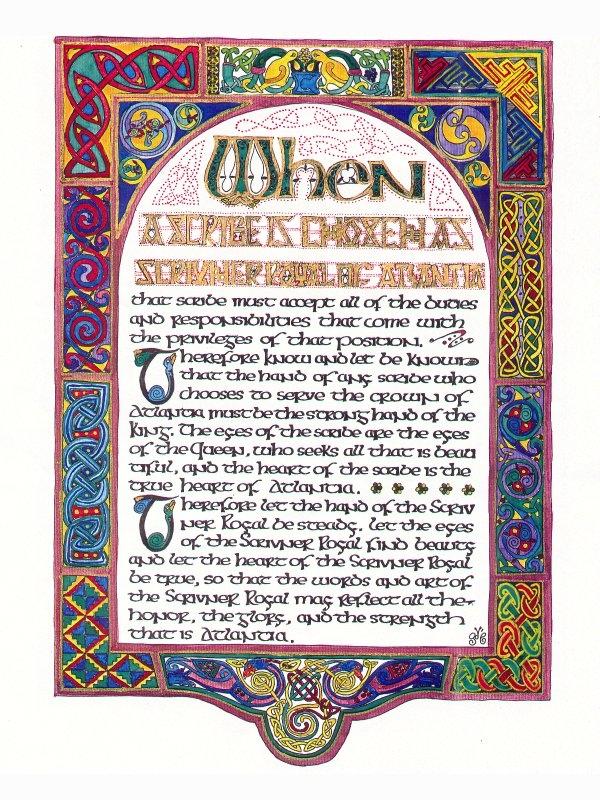 When
A SCRIBE IS CHOSEN AS
SCRIVNER ROYAL OF ATLANTIA
that scribe must accept all of the duties
and responsibilities that come with
the privileges of that position.
Therefore know and let be known
that the hand of any scribe who
chooses to serve the crown of
Atlantia must be the strong hand of the
King. The eyes of the scribe are the eyes
of the Queen, who seeks all that is beau
tiful, and the heart of the scribe is the
true heart of Atlantia.
Therefore let the hand of the Scriv
ner Royal be steady. let the eyes
of the Scrivner Royal find beauty
and let the heart of the Scrivner Royal
be true, so that the words and art of
the Scrivner Royal may reflect all the
honor, the glory, and the strength
that is Atlantia.